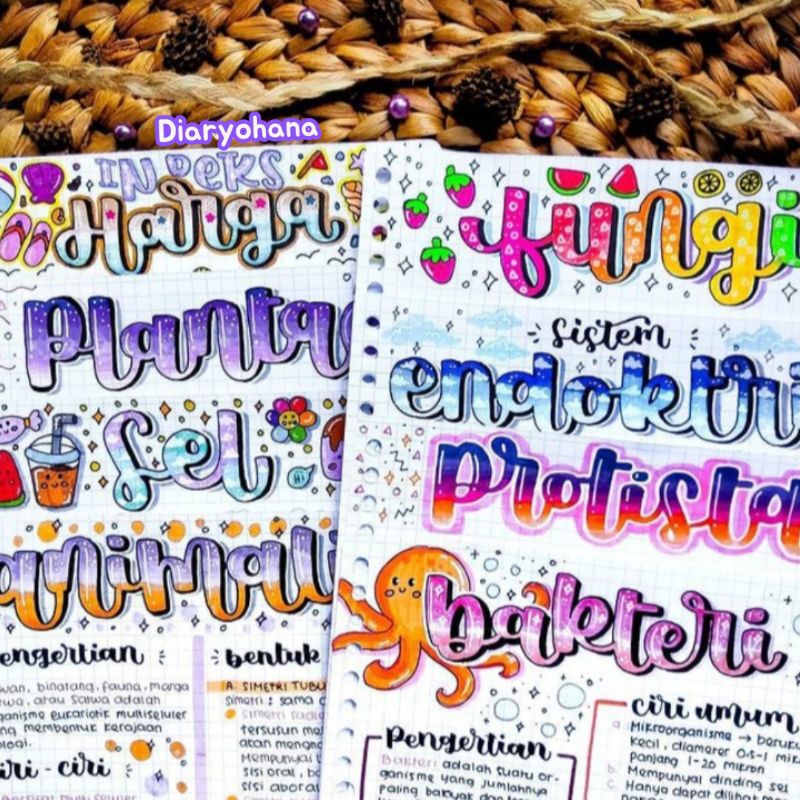 Diaryohana
INDEKS
Harga
Planta
Sel
HI
animali
engertian
wan, binatang, fauna, marga
twa, atau satwa adalah
ganisme eukariotik multiseluler
ng membentuk kerajaan
ologi.
iri - ciri
bentuk
A. SIMETRI TUBU
simetri : sama
simetri radi
tersusun me
akan mengh
Mempunyai
sisi oral, b
sisi aboral
fungi
sistem
endoktri
Protista
bakteri
Pengertian
Bakteri adalah suatu or-
ganisme yang jumlahnya
paling banyak dan
ciri umum
a. Mikroorganisme → beruku
kecil, diameter 0,5-1 mik
panjang 1-20 mikron
b. Mempunyai dinding sel
c. Hanya dapat dilihat